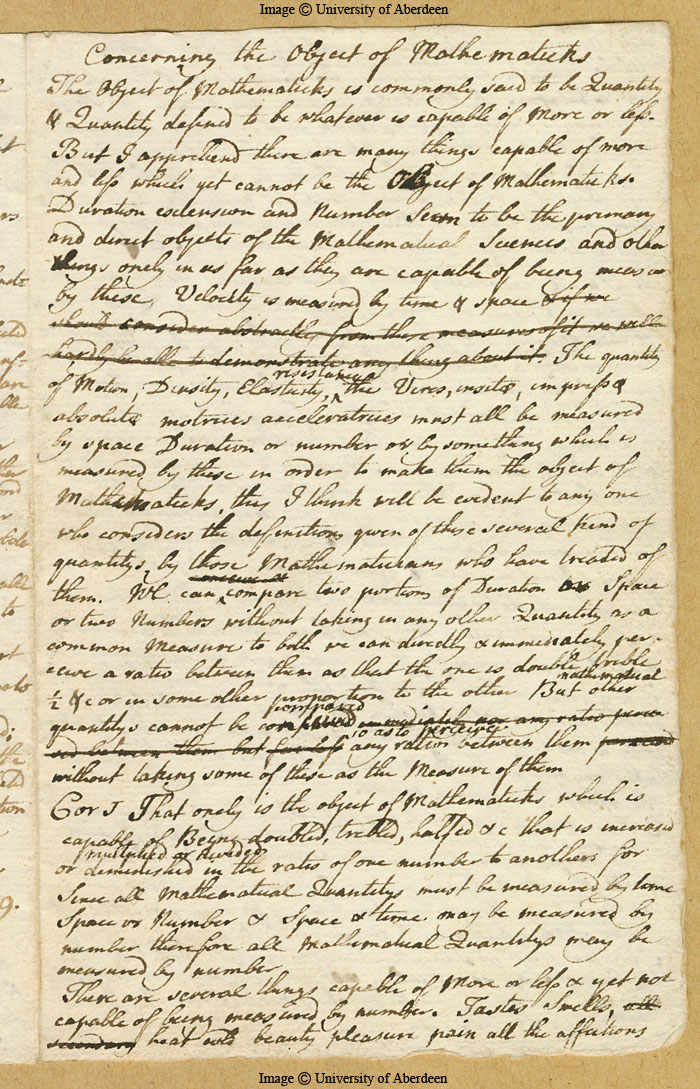 Image © University of Aberdeen
Concerning the Object of Mathematicks
The Object of Mathematicks is commonly said to be Quantity
& Quantity defined to be whatever is capable of More or less.
But I apprehend there are many things capable of more
and less which yet cannot be the Object of Mathematicks.
Duration extension and Number Seem to be the primary
and direct objects of the Mathematical Sciences and other
things onely in as far as they are capable of being measur
by these, Velocity is measured by time & space & if we
should consider abstractly from these measures of it we will
hardly be able to demonstrate any thing about it. The quantity
resistance
of Motion, Density, Elasticity, the Vires, insitæ, impressæ
absolutæ motrices acceleratrices must all be measured
by space Duration or number or by something which is
measured by these in order to make them the object of
Mathematicks, this I think will be evident to any one
who considers the definitions given of these several kind of
quantitys by those Mathematicians who have treated of
them. We can compare two portions of Duration or Space
or two Numbers without taking in any other Quantity as a
common Measure to both we can directly & immediately per-
ceive a ratio between them as that the one is double, treble
mathematical
½ &c or in some other proportion to the other But other
compared
quantitys cannot be immediately nor any ratio percei
so as to perceive
sed between them but any ratios between them
without taking some of these as the Measure of them
Cor 1 That onely is the object of Mathematicks which is
capable of Being doubled, trebled, halfed &c that is increased
multiplied or divided
or diminished in the ratio of one number to anothers for
Since all Mathematical Quantitys must be measured by time
Space or Number & Space & time may be measured by
number therefore all Mathematical Quantitys may be
measured by number
There are several things capable of More or less & yet not
capable of being measured by number. Tastes Smells, all
secondary heat cold beauty pleasure pain all the affections
Image © University of Aberdeen